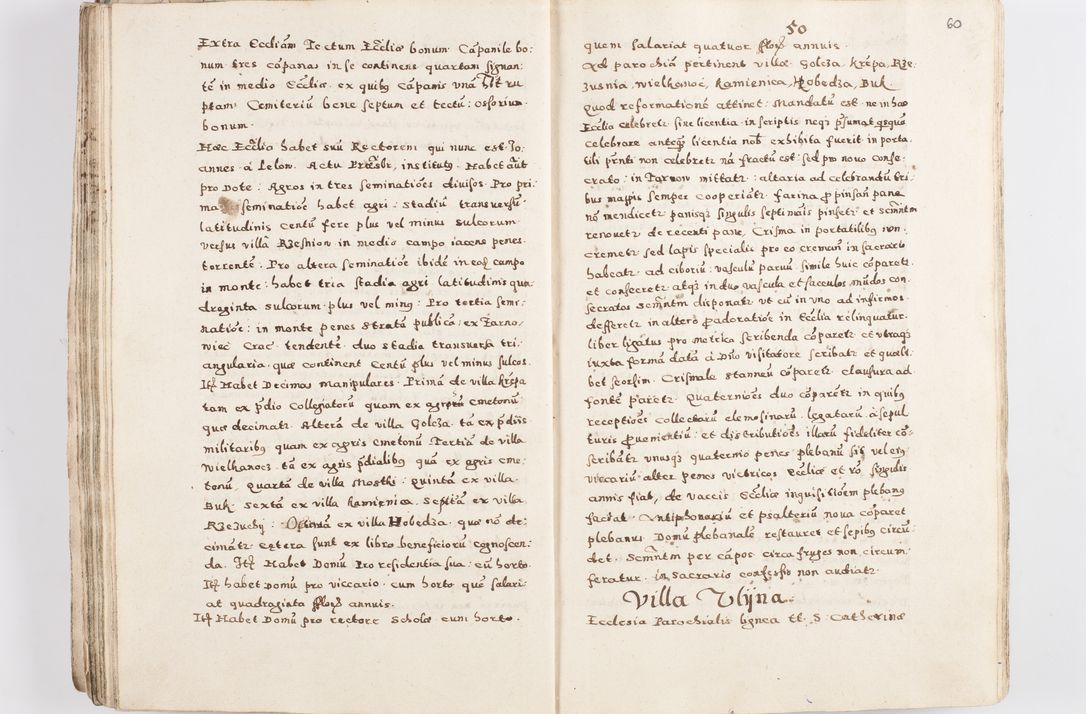 Extra Eccliam Tectum Eccliæ bonum. Cāpanile bo:
num tres cāpanas in se continens quartam signan:
tē in medio Eccliæ. ex quibq cāpanis unā
ptam Cemiteriū bene septum et tectū: ossorium
bonum.
Hæc Ecclia habet suū Rectorem qui nunc est Jo:
annes á Lelow. Actu Præsbr, institutq. Habet aūt
pro Dote: Agros in tres seminatiōes divisos. Pro pri:
ma seminatiōe habet agri: stadiū transversū
latitudinis centū fere plus vel minus sulcorum
versus villā Rzeshiow in medio campo iacens penes
torrentē. Pro altera seminatiōe ibidē in eoq campo
in monte: habet tria stadia agri latitudinis qua:
draginta sulcorum plus vel minq: Pro tertia semi:
natiōe: in monte penes stratā publicā, ex Żarno:
wiec Crac: tendentē. duo stadia transversa tri:
angularia, quæ continent Centū plus vel minus sulcos.
Itē Habet Decimas manipulares. Primā de villa krēpa
tam ex p̄dio Collegiatorū quam ex agrorū cmetonū
quæ decimat. Alterā de villa Golcza. tā ex p̄diis
militaribq quam ex agris cmetonū Tertiā de villa
Wielhanocz. tā ex agris p̄dialibq quā ex agris cme:
tonū, quartā de villa Mostki: quintā ex villa
Buk. sextā ex villa kamienica. septimā ex villa
Rzezuchij: Octavā ex villa Hobedza. quæ nō de:
cimāt. cætera sunt ex libro beneficiorū cognoscen:
da. Itē Habet Domū pro residentia sua: cū horto.
Itē habet Domū pro viccario. cum horto quē salari:
at quadraginta floꝝ annuis.
Itē Habet Domū pro rectore scholæ cum horto.
50
60
quem salariat quatuor floꝝ annuis.
Ad parochiā pertinent villæ Golcza, krēpa, Rze:
zusnia, wielhonoc, kamienica, Hobedza, Buk.
Quod reformationē attinet: Mandatū est ne in hac
Ecclia celebret sine licentia in scriptis neqꝫ p̄sumat qsquā
celebrare anteqꝫ licentia nob exhibita fuerit in porta:
tili p̄nti non celebret nā fractū est: sed pro novo conse:
crato: in Tarnow mittat: altaria ad celebrandū tri:
bus mappis semper cooperiāt farina p pinsān pane
nō mendicet panisqꝫ singulis septimāis pinset et scm̄ntm
renovet de recenti pane. Crisma in portatilibq non
cremet sed lapis specialis pro eo cremān in sacrario
habeat. ad ciboriū: vasculū parvū. simile huic cōparet
et consecret atqꝫ in duo vascula et sacculos mūdos con:
secratos scm̄ntm disponat ut cū in uno ad infirmos
defferet in altero p adoratiōe in Ecclia relinquatur.
liber ligatus pro metrica scribenda cōparet et utraqꝫ
iuxta formā datā á Dno Visitatore scribat et quæli:
bet seorsim. Crismale stanneū cōparet. clausura ad
fontē paret. Quaterniōes duo cōparēt in quibq
receptiōes collectarū elemosinarū, legatarū á sepul:
turis pvenientiū et distributiōes illarū fideliter cō:
scribāt unusqꝫ quaternio penes plebanū sit vel eiꝫ
viccariū alter penes victricos Eccliæ et rō. singulis
annis fiat, de vaccis Eccliæ inquisitiōem plebanq
faciat. Antiphonariū et psalteriū nova cōparet
plebanus. Domū plebanalē restauret et sepibq circū:
det. Scm̄ntm per cāpos circa fruges non circum:
feratur. in sacrario confessio non audiat.
Villa Ulijna.
Ecclesia Parochialis lignea tt. S: Catherinæ